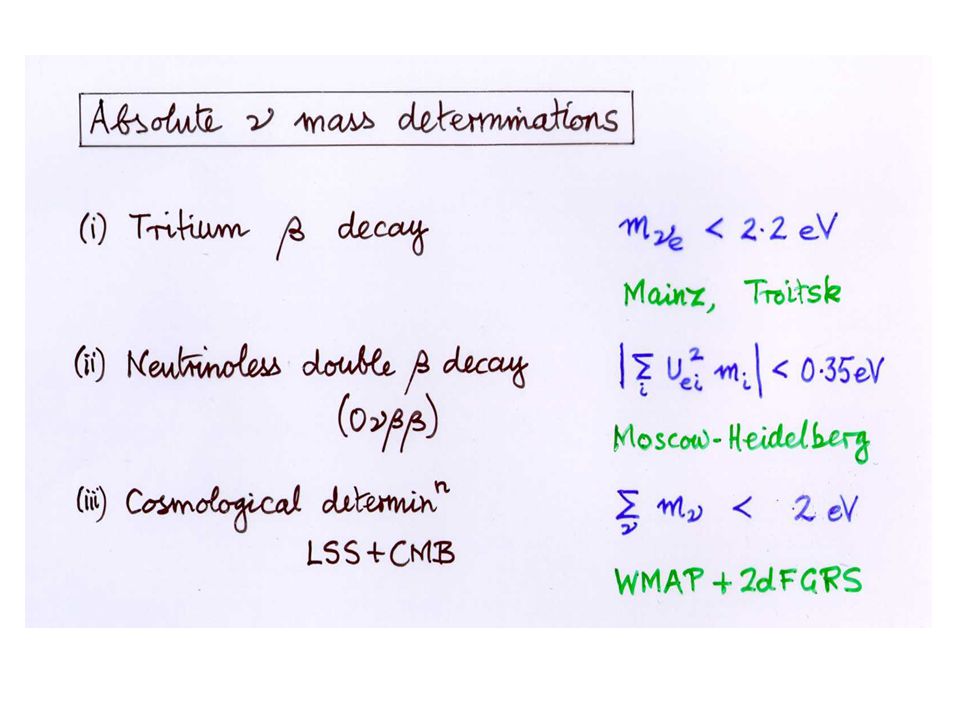 Absolute ν mass determinations
(i) Tritium β decay
m_νe < 2.2 eV
Mainz, Troitsk
(ii) Neutrinoless double β decay
|Σ_i U_ei^2 m_i| < 0.35eV
(0νββ)
Moscow-Heidelberg
(iii) Cosmological determin^n
Σ_ν m_ν < 2 eV
LSS+CMB
WMAP + 2dFGRS